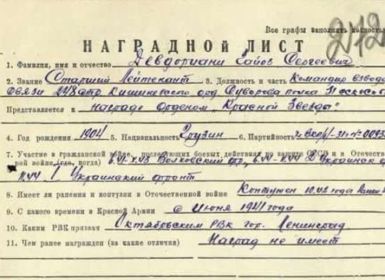 Все графы заполнять полностью
272
НАГРАДНОЙ ЛИСТ
1. Фамилия, имя и отчество Девдориани Сергеевич
2. Звание Старший Лейтенант 3. Должность и часть Командир взвода
связи Кишиневского орд. Суворова полка
Представляется к награде Орденом "Красной Звезды"
4. Год рождения 1904 5. Национальность Грузин 6. Партийность
7. Участие в гражданской войне, последующих боевых действиях по защите СССР и в Отечественной войне (где, когда) Волховский 2 Украинский
1 Украинский фронт
8. Имеет ли ранения и контузии в Отечественной войне Контужен года
9. С какого времени в Красной Армии с Июня 1941 года
10. Каким РВК призван Октябровским РВК гор. Ленинград
11. Чем ранее награжден (за какие отличия) Наград не имеет